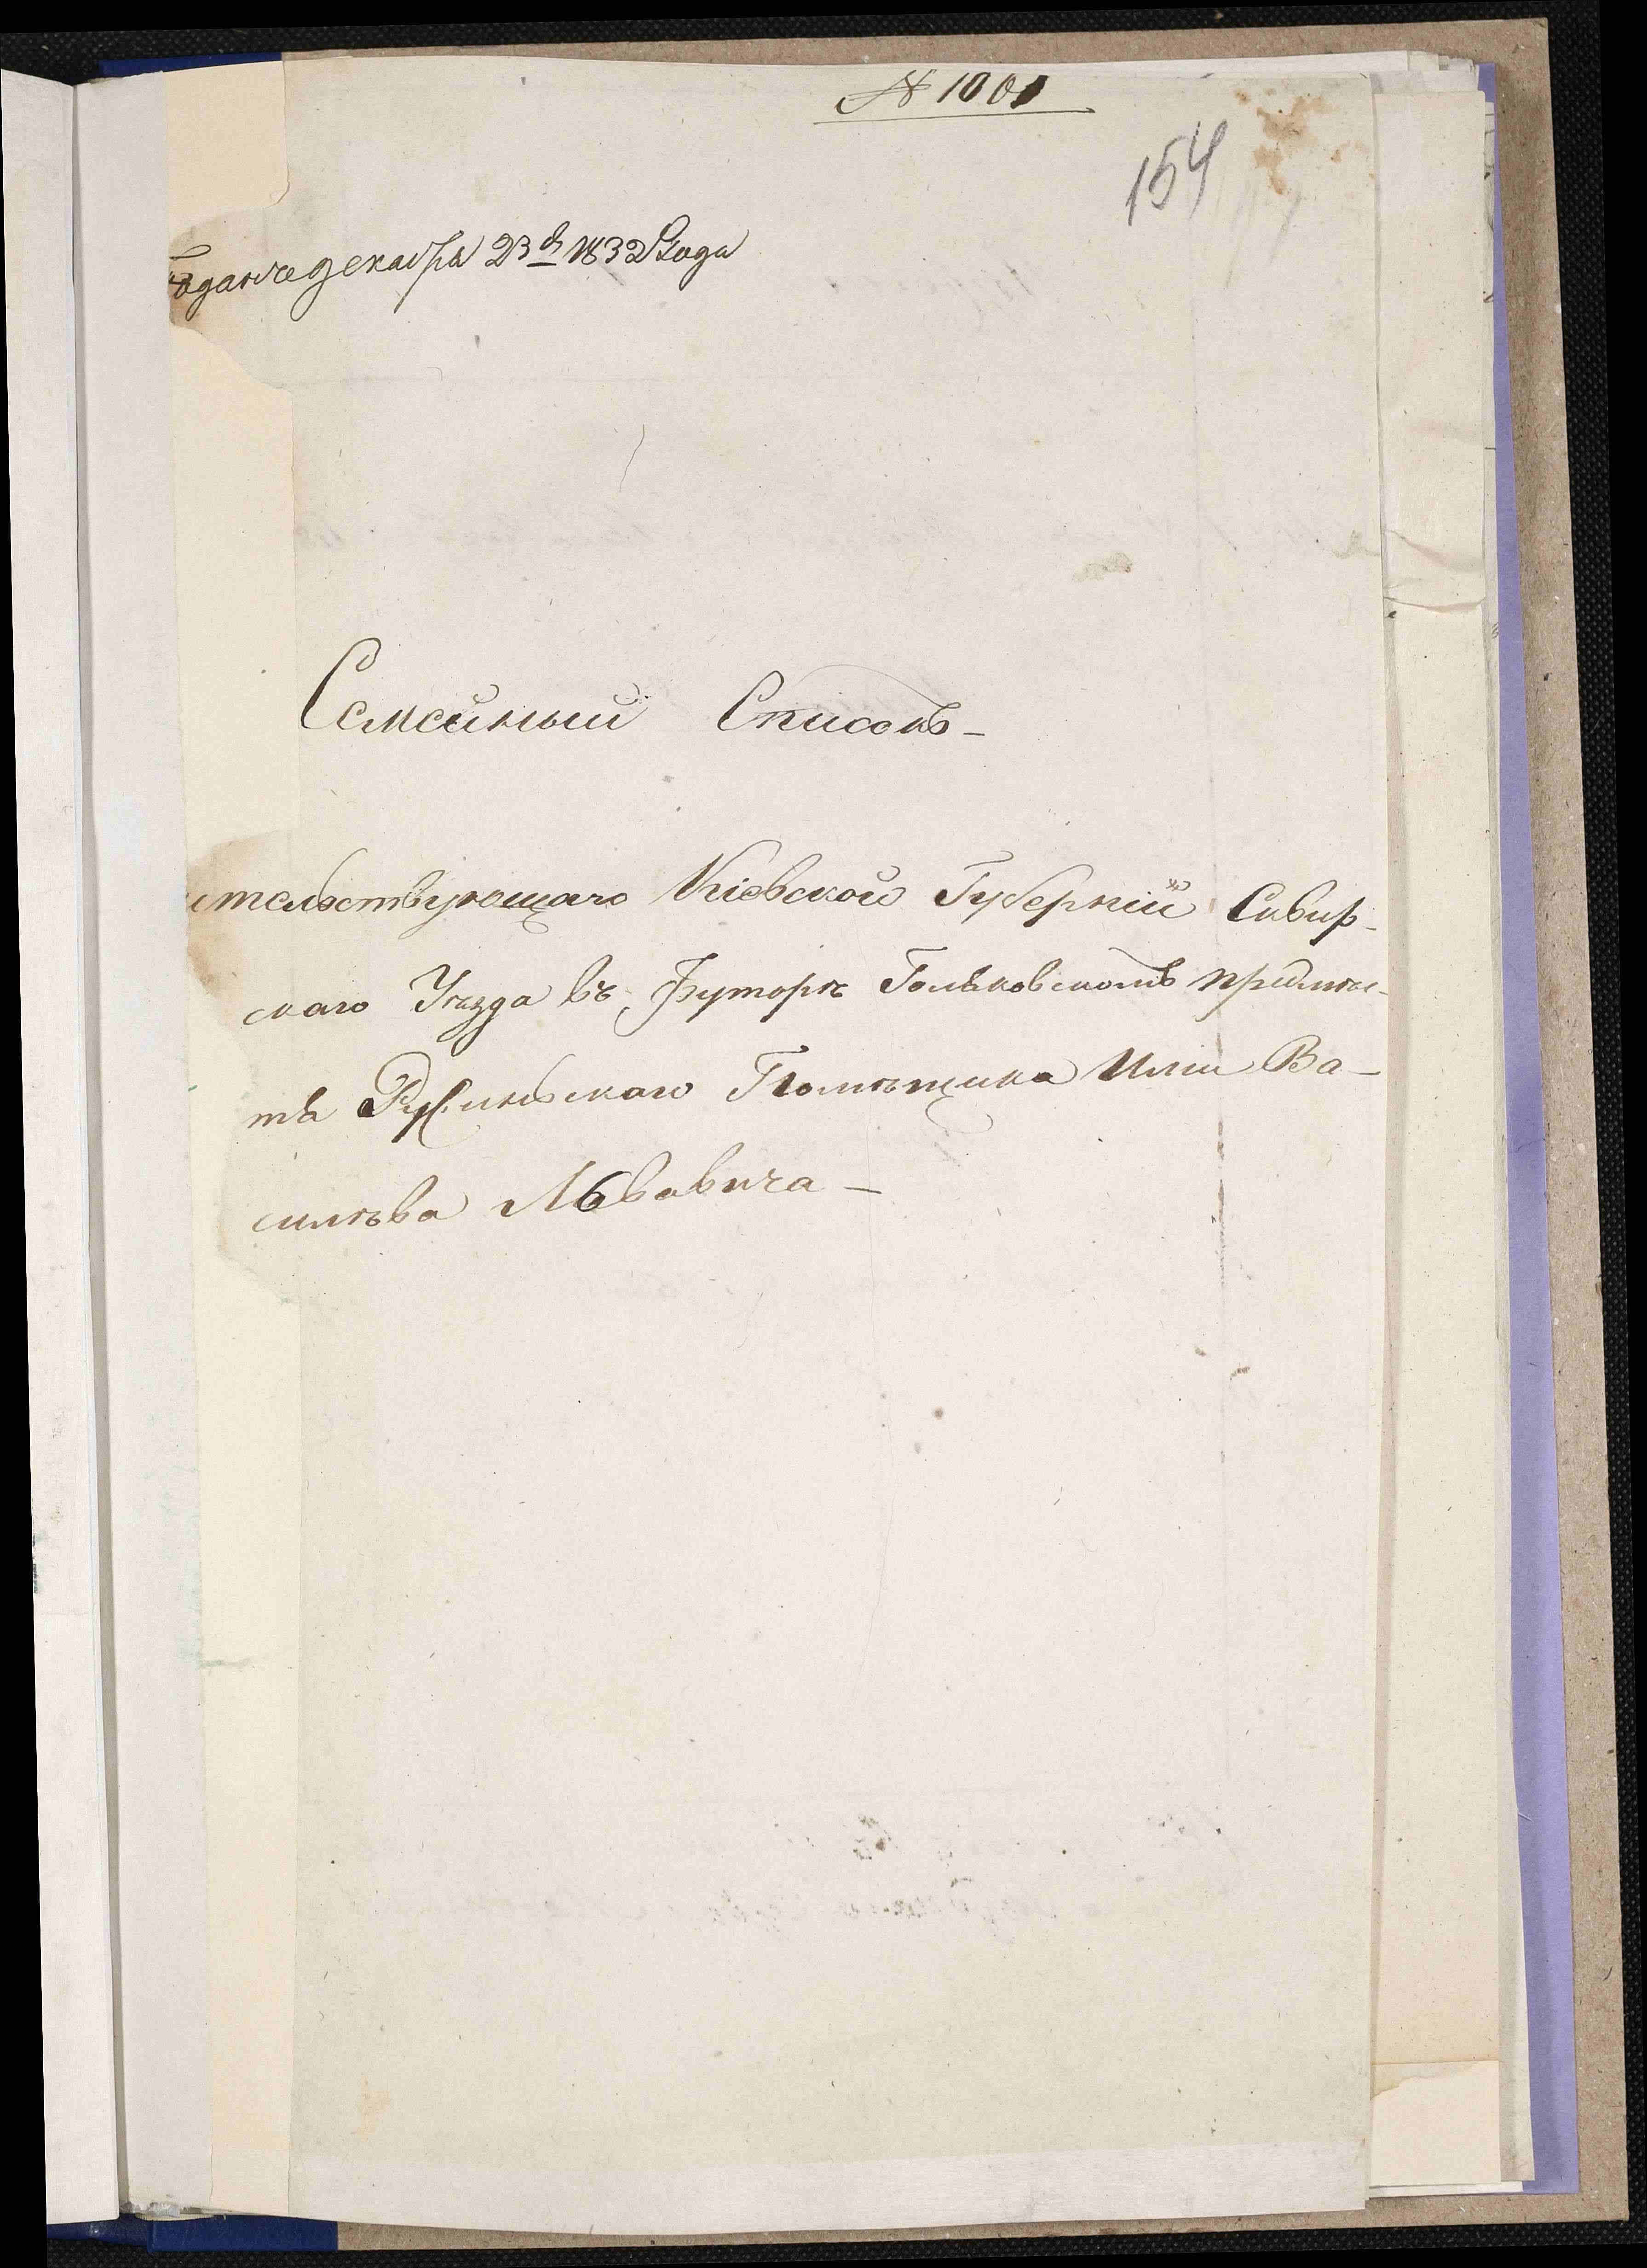 № 1001
154
Подан че декабря 23 д 1832 Года
Семейный Списокъ-
ительствующаго Кіевской Губерніи Сквир-
скаго Уѣзда въ Футорѣ Гольковскомъ
та Помѣщика Ильи Ва-
сильѣва Львовича-